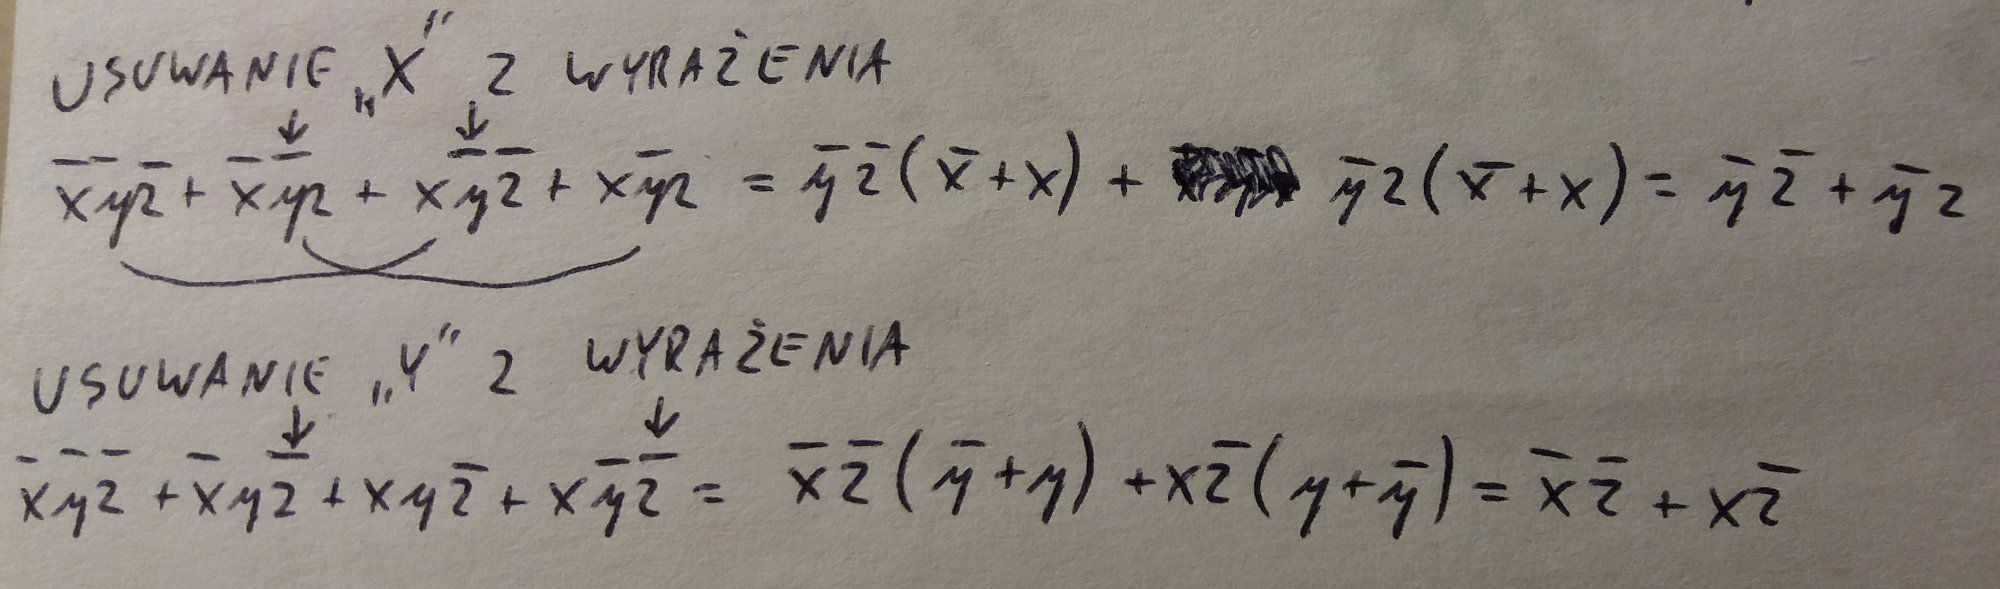 USUWANIE „X" Z WYRAŻENIA
x̅y̅z̅ + x̅y̅z + xy̅z̅ + xy̅z = y̅z̅(x̅+x) + y̅z(x̅+x) = y̅z̅ + y̅z
USUWANIE „Y" Z WYRAŻENIA
x̅y̅z̅ + x̅yz̅ + xyz̅ + xy̅z̅ = x̅z̅(y̅+y) + xz̅(y+y̅) = x̅z̅ + xz̅